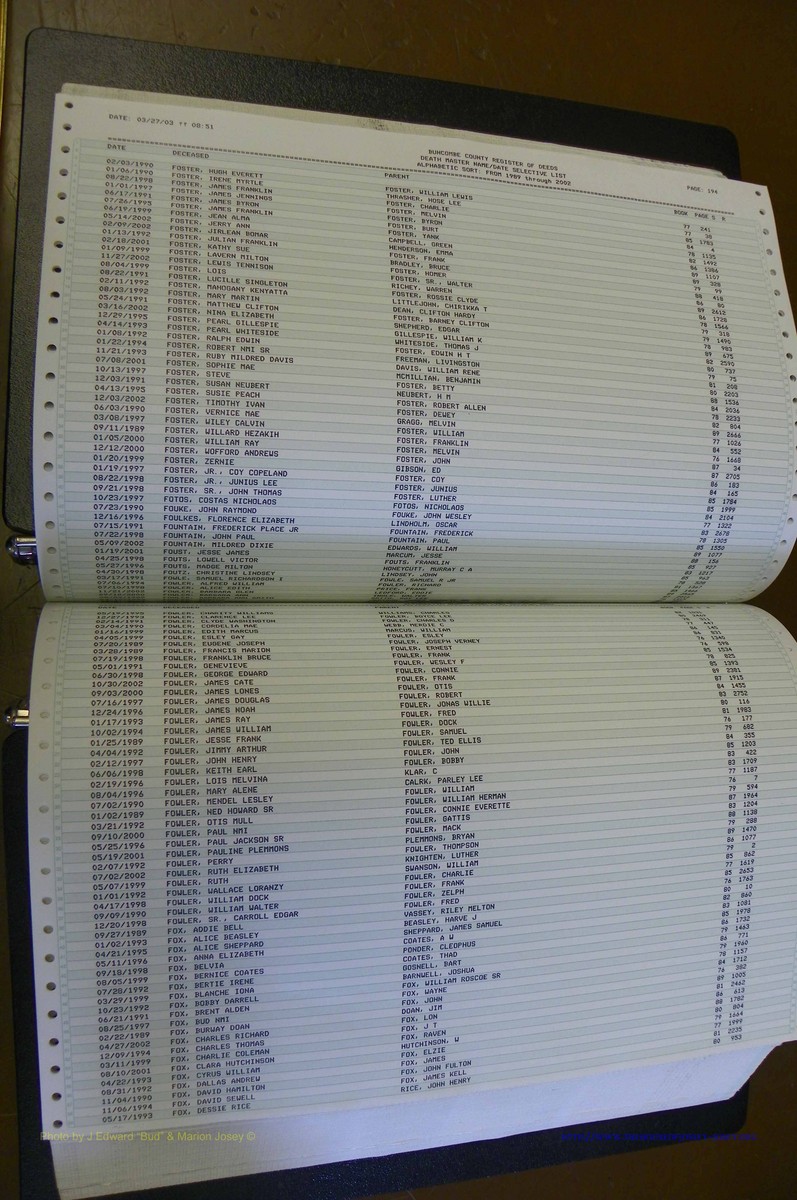 DATE: 03/27/03 ** 08:51
BUNCOMBE COUNTY REGISTER OF DEEDS
DEATH MASTER NAME/DATE SELECTIVE LIST
ALPHABETIC SORT: FROM 1989 through 2002
PAGE: 194
DATE DECEASED PARENT BOOK PAGE S R
02/03/1990 FOSTER, HUGH EVERETT FOSTER, WILLIAM LEWIS 77 241
01/06/1990 FOSTER, IRENE MYRTLE THRASHER, HOSE LEE 77 38
08/22/1998 FOSTER, JAMES FRANKLIN FOSTER, CHARLIE 85 1783
01/01/1997 FOSTER, JAMES JENNINGS FOSTER, MELVIN 84 4
06/17/1991 FOSTER, JAMES BYRON FOSTER, BYRON 78 1135
07/26/1995 FOSTER, JAMES FRANKLIN FOSTER, BURT 82 1492
06/19/1999 FOSTER, JEAN ALMA FOSTER, YANK 86 1386
05/14/2002 FOSTER, JERRY ANN CAMPBELL, GREEN 89 1107
02/09/2002 FOSTER, JIRLEAN BOMAR HENDERSON, EMMA 89 328
01/13/1992 FOSTER, JULIAN FRANKLIN FOSTER, FRANK 79 99
02/18/2001 FOSTER, KATHY SUE BRADLEY, BRUCE 88 418
01/09/1999 FOSTER, LAVERN MILTON FOSTER, HOMER 86 80
11/27/2002 FOSTER, LEWIS TENNISON FOSTER, SR., WALTER 89 2612
08/04/1999 FOSTER, LOIS RICHEY, WARREN 86 1728
08/22/1991 FOSTER, LUCILLE SINGLETON FOSTER, ROSSIE CLYDE 78 1566
02/11/1992 FOSTER, MAHOGANY KENYATTA LITTLEJOHN, CHIRIKKA T 79 318
08/03/1992 FOSTER, MARY MARTIN DEAN, CLIFTON HARDY 79 1490
05/24/1991 FOSTER, MATTHEW CLIFTON FOSTER, BARNEY CLIFTON 78 983
03/16/2002 FOSTER, NINA ELIZABETH SHEPHERD, EDGAR 89 675
12/29/1995 FOSTER, PEARL GILLESPIE GILLESPIE, WILLIAM K 82 2590
04/14/1993 FOSTER, PEARL WHITESIDE WHITESIDE, THOMAS J 80 737
01/08/1992 FOSTER, RALPH EDWIN FOSTER, EDWIN H T 79 75
01/22/1994 FOSTER, ROBERT NMI SR FREEMAN, LIVINGSTON 81 208
11/21/1993 FOSTER, RUBY MILDRED DAVIS DAVIS, WILLIAM RENE 80 2203
07/08/2001 FOSTER, SOPHIE MAE MCMILLIAN, BENJAMIN 88 1536
10/13/1997 FOSTER, STEVE FOSTER, BETTY 84 2036
12/03/1991 FOSTER, SUSAN NEUBERT NEUBERT, H M 78 2233
04/13/1995 FOSTER, SUSIE PEACH FOSTER, ROBERT ALLEN 82 804
12/03/2002 FOSTER, TIMOTHY IVAN FOSTER, DEWEY 89 2666
06/03/1990 FOSTER, VERNICE MAE GRAGG, MELVIN 77 1026
03/08/1997 FOSTER, WILEY CALVIN FOSTER, WILLIAM 84 552
09/11/1989 FOSTER, WILLARD HEZAKIH FOSTER, FRANKLIN 76 1668
01/05/2000 FOSTER, WILLIAM RAY FOSTER, MELVIN 87 34
12/12/2000 FOSTER, WOFFORD ANDREWS FOSTER, JOHN 87 2705
01/20/1999 FOSTER, ZERNIE GIBSON, ED 86 183
01/19/1997 FOSTER, JR., COY COPELAND FOSTER, COY 84 165
08/22/1998 FOSTER, JR., JUNIUS LEE FOSTER, JUNIUS 85 1784
09/21/1998 FOSTER, SR., JOHN THOMAS FOSTER, LUTHER 85 1999
10/23/1997 FOTOS, COSTAS NICHOLAOS FOTOS, NICHOLAOS 84 2104
07/23/1990 FOUKE, JOHN RAYMOND FOUKE, JOHN WESLEY 77 1322
12/16/1996 FOULKES, FLORENCE ELIZABETH LINDHOLM, OSCAR 83 2678
07/15/1991 FOUNTAIN, FREDERICK PLACE JR FOUNTAIN, FREDERICK 78 1305
07/22/1998 FOUNTAIN, JOHN PAUL FOUNTAIN, PAUL 85 1550
05/09/2002 FOUNTAIN, MILDRED DIXIE EDWARDS, WILLIAM 89 1077
01/19/2001 FOUST, JESSE JAMES MARCUM, JESSE 88 156
04/25/1998 FOUTS, LOWELL VICTOR FOUTS, FRANKLIN 85 927
05/27/1996 FOUTS, MADGE MILTON HONEYCUTT, MURRAY C A 83 1217
04/30/1998 FOUTZ, CHRISTINE LINDSEY LINDSEY, JOHN 85 963
03/17/1991 FOWLE, SAMUEL RICHARDSON I FOWLE, SAMUEL R JR
07/06/1994 FOWLER, ALFRED WILLIAM FOWLER, RICHARD
DATE DECEASED PARENT
05/19/1995 FOWLER, CHARITY WILLIAMS WILLIAMS, CHARLES
12/27/1995 FOWLER, CLARENCE LEE FOWLER, BOYCE LEE
02/14/1991 FOWLER, CLYDE WASHINGTON FOWLER, CHARLES G
03/04/1990 FOWLER, CORDELIA MAE WEBB, MERDIE C
01/16/1999 FOWLER, EDITH MARCUS MARCUS, WILLIAM
04/05/1999 FOWLER, ESLEY GAY FOWLER, ESLEY 86 831
07/20/1989 FOWLER, EUGENE JOSEPH FOWLER, JOSEPH VERNEY 76 1340
03/28/1989 FOWLER, FRANCIS MARION FOWLER, ERNEST 76 598
07/19/1998 FOWLER, FRANKLIN BRUCE FOWLER, FRANK 85 1534
05/01/1991 FOWLER, GENEVIEVE FOWLER, WESLEY F 78 825
06/30/1998 FOWLER, GEORGE EDWARD FOWLER, CONNIE 85 1393
10/30/2002 FOWLER, JAMES CATE FOWLER, FRANK 89 2381
09/03/2000 FOWLER, JAMES LONES FOWLER, OTIS 87 1915
07/16/1997 FOWLER, JAMES DOUGLAS FOWLER, ROBERT 84 1455
12/24/1996 FOWLER, JAMES NOAH FOWLER, JONAS WILLIE 83 2752
01/17/1993 FOWLER, JAMES RAY FOWLER, FRED 80 116
10/02/1994 FOWLER, JAMES WILLIAM FOWLER, DOCK 81 1983
01/25/1989 FOWLER, JESSE FRANK FOWLER, SAMUEL 76 177
04/04/1992 FOWLER, JIMMY ARTHUR FOWLER, TED ELLIS 79 682
02/12/1997 FOWLER, JOHN HENRY FOWLER, JOHN 84 355
06/06/1998 FOWLER, KEITH EARL FOWLER, BOBBY 85 1203
02/19/1996 FOWLER, LOIS MELVINA KLAR, C 83 422
08/04/1996 FOWLER, MARY ALENE CALRK, PARLEY LEE 83 1709
07/02/1990 FOWLER, MENDEL LESLEY FOWLER, WILLIAM 77 1187
01/02/1989 FOWLER, NED HOWARD SR FOWLER, WILLIAM HERMAN 76 7
03/21/1992 FOWLER, OTIS MULL FOWLER, CONNIE EVERETTE 79 594
09/10/2000 FOWLER, PAUL NMI FOWLER, GATTIS 87 1964
05/25/1996 FOWLER, PAUL JACKSON SR FOWLER, MACK 83 1204
05/19/2001 FOWLER, PAULINE PLEMMONS PLEMMONS, BRYAN 88 1138
02/07/1992 FOWLER, PERRY FOWLER, THOMPSON 79 288
07/02/2002 FOWLER, RUTH ELIZABETH KNIGHTEN, LUTHER 89 1470
05/07/1999 FOWLER, RUTH SWANSON, WILLIAM 86 1077
01/01/1992 FOWLER, WALLACE LORANZY FOWLER, CHARLIE 79 2
04/17/1998 FOWLER, WILLIAM DOCK FOWLER, FRANK 85 862
09/09/1990 FOWLER, WILLIAM WALTER FOWLER, ZELPH 77 1619
12/20/1998 FOWLER, SR., CARROLL EDGAR FOWLER, FRED 85 2653
09/27/1989 FOX, ADDIE BELL VASSEY, RILEY MELTON 76 1763
01/02/1993 FOX, ALICE BEASLEY BEASLEY, HARVE J 80 10
04/21/1995 FOX, ALICE SHEPPARD SHEPPARD, JAMES SAMUEL 82 860
05/11/1996 FOX, ANNA ELIZABETH COATES, A W 83 1081
09/18/1998 FOX, BELVIA PONDER, CLEOPHUS 85 1978
08/05/1999 FOX, BERNICE COATES COATES, THAD 86 1732
07/28/1992 FOX, BERTIE IRENE GOSNELL, BART 79 1463
03/29/1999 FOX, BLANCHE IONA BARNWELL, JOSHUA 86 771
10/23/1992 FOX, BOBBY DARRELL FOX, WILLIAM ROSCOE SR 79 1960
06/21/1991 FOX, BRENT ALDEN FOX, WAYNE 78 1157
08/25/1997 FOX, BUD NMI FOX, JOHN 84 1712
02/22/1989 FOX, BURWAY DOAN DOAN, JIM 76 382
04/27/2002 FOX, CHARLES RICHARD FOX, LON 89 1005
12/09/1994 FOX, CHARLES THOMAS FOX, J T 81 2462
03/11/1999 FOX, CHARLIE COLEMAN FOX, RAVEN 86 613
08/10/2001 FOX, CLARA HUTCHINSON HUTCHINSON, W 88 1782
04/22/1993 FOX, CYRUS WILLIAM FOX, ELZIE 80 804
08/31/1992 FOX, DALLAS ANDREW FOX, JAMES 79 1664
11/04/1990 FOX, DAVID HAMILTON FOX, JOHN FULTON 77 1999
11/06/1994 FOX, DAVID SEWELL FOX, JAMES KELL 81 2235
05/17/1993 FOX, DESSIE RICE RICE, JOHN HENRY 80 953
Photo by J Edward "Bud" & Marion Josey ©